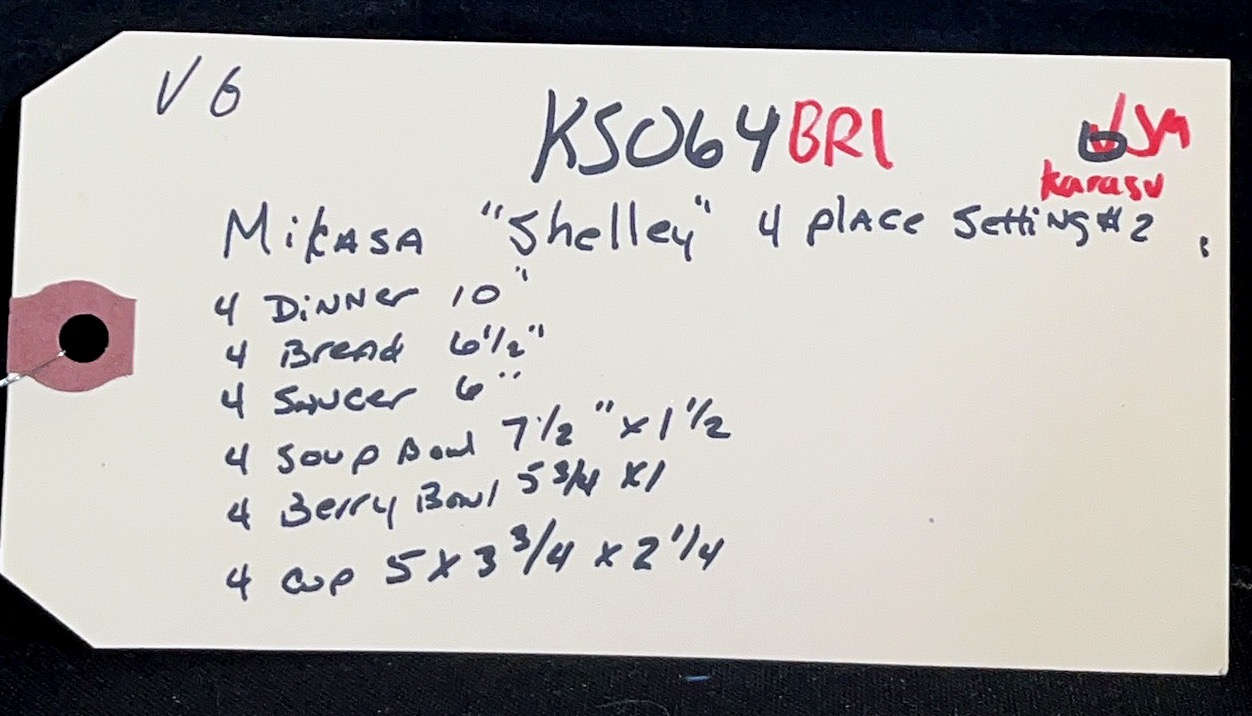 V6
KS064BR1
karasu
Mikasa "Shelley" 4 place Setting #2
4 Dinner 10"
4 Bread 6 1/2"
4 Saucer 6"
4 Soup Bowl 7 1/2" x 1 1/2
4 Berry Bowl 5 3/4 x 1
4 Cup 5 x 3 3/4 x 2 1/4